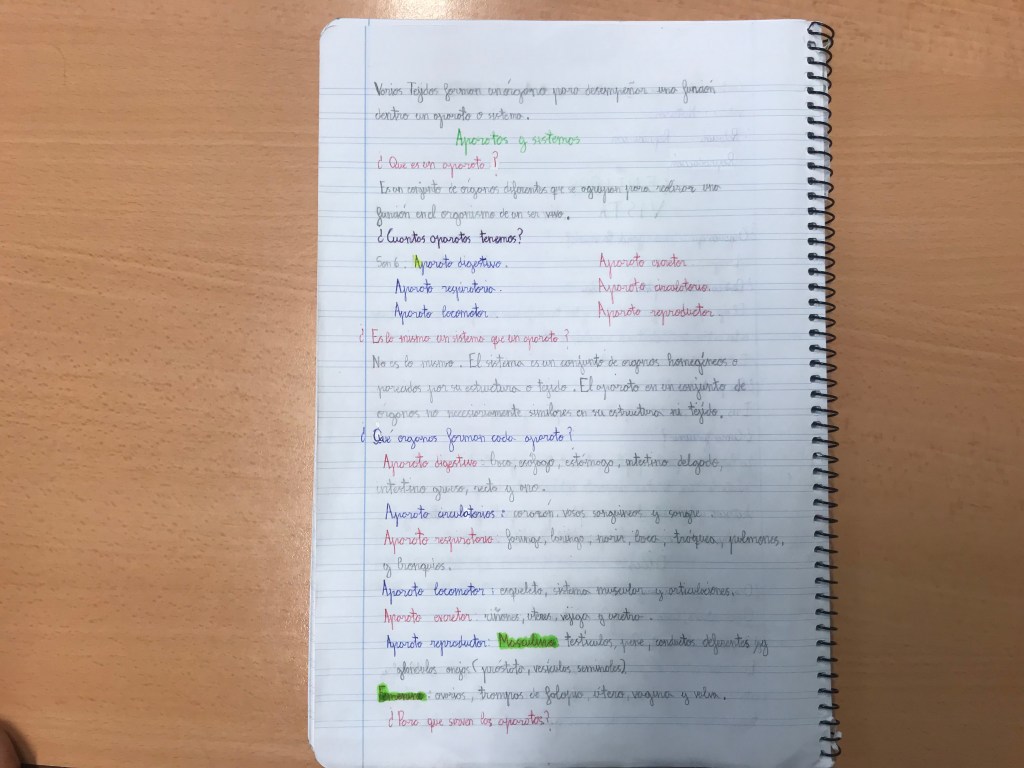 Varios Tejidos forman un órgano para desempeñar una función
dentro un aparato o sistema.
Aparatos y sistemas
¿ Que es un aparato ?
Es un conjunto de órganos diferentes que se agrupan para realizar una
función en el organismo de un ser vivo.
¿Cuantos aparatos tenemos?
Son 6. Aparato digestivo. Aparato excretor
Aparato respiratorio. Aparato circulatorio.
Aparato locomotor Aparato reproductor.
¿ Es lo mismo un sistema que un aparato ?
No es lo mismo. El sistema es un conjunto de organos homogéneos o
por su estructura o tejido. El aparato en un conjunto de
organos no necesariamente similares en su estructura ni tejido.
¿ Qué organos forman cada aparato ?
Aparato digestivo: boca, esófago, estómago, intestino delgado,
intestino grueso, recto y ano.
Aparato circulatorios: corazón, vasos sanguíneos y sangre
Aparato respiratorio: faringe, laringe, nariz, boca, tráquea, pulmones.
y bronquios.
Aparato locomotor: esqueleto, sistema muscular y articulaciones.
Aparato excretor: riñones, vejiga y uretra.
Aparato reproductor: Masculino testículos, pene, conductos deferentes y
glándulas anejas (próstata, vesículas seminales)
Femenino: ovarios, trompas de falopio, útero, vagina y vulva.
¿Para que sirven los aparatos?